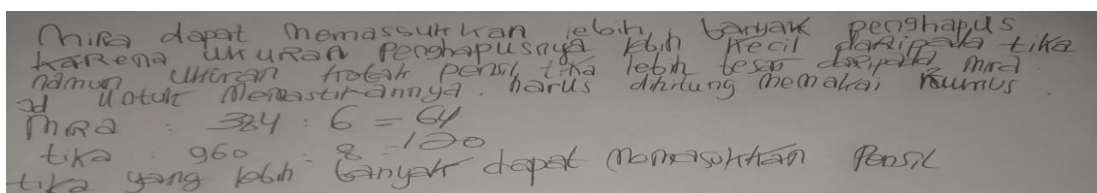 Mira dapat memassukkan lebih banyak penghapus
karena ukuran penghapusnya lebih kecil daripada tika
namun ukuran kotak pensil tika lebih besar daripada mira
Jd untuk memastikannya harus dihitung memakai rumus
Mira : 384 : 6 = 64
tika : 960 : 8 = 120
tika yang lebih banyak dapat memasukkan Pensil